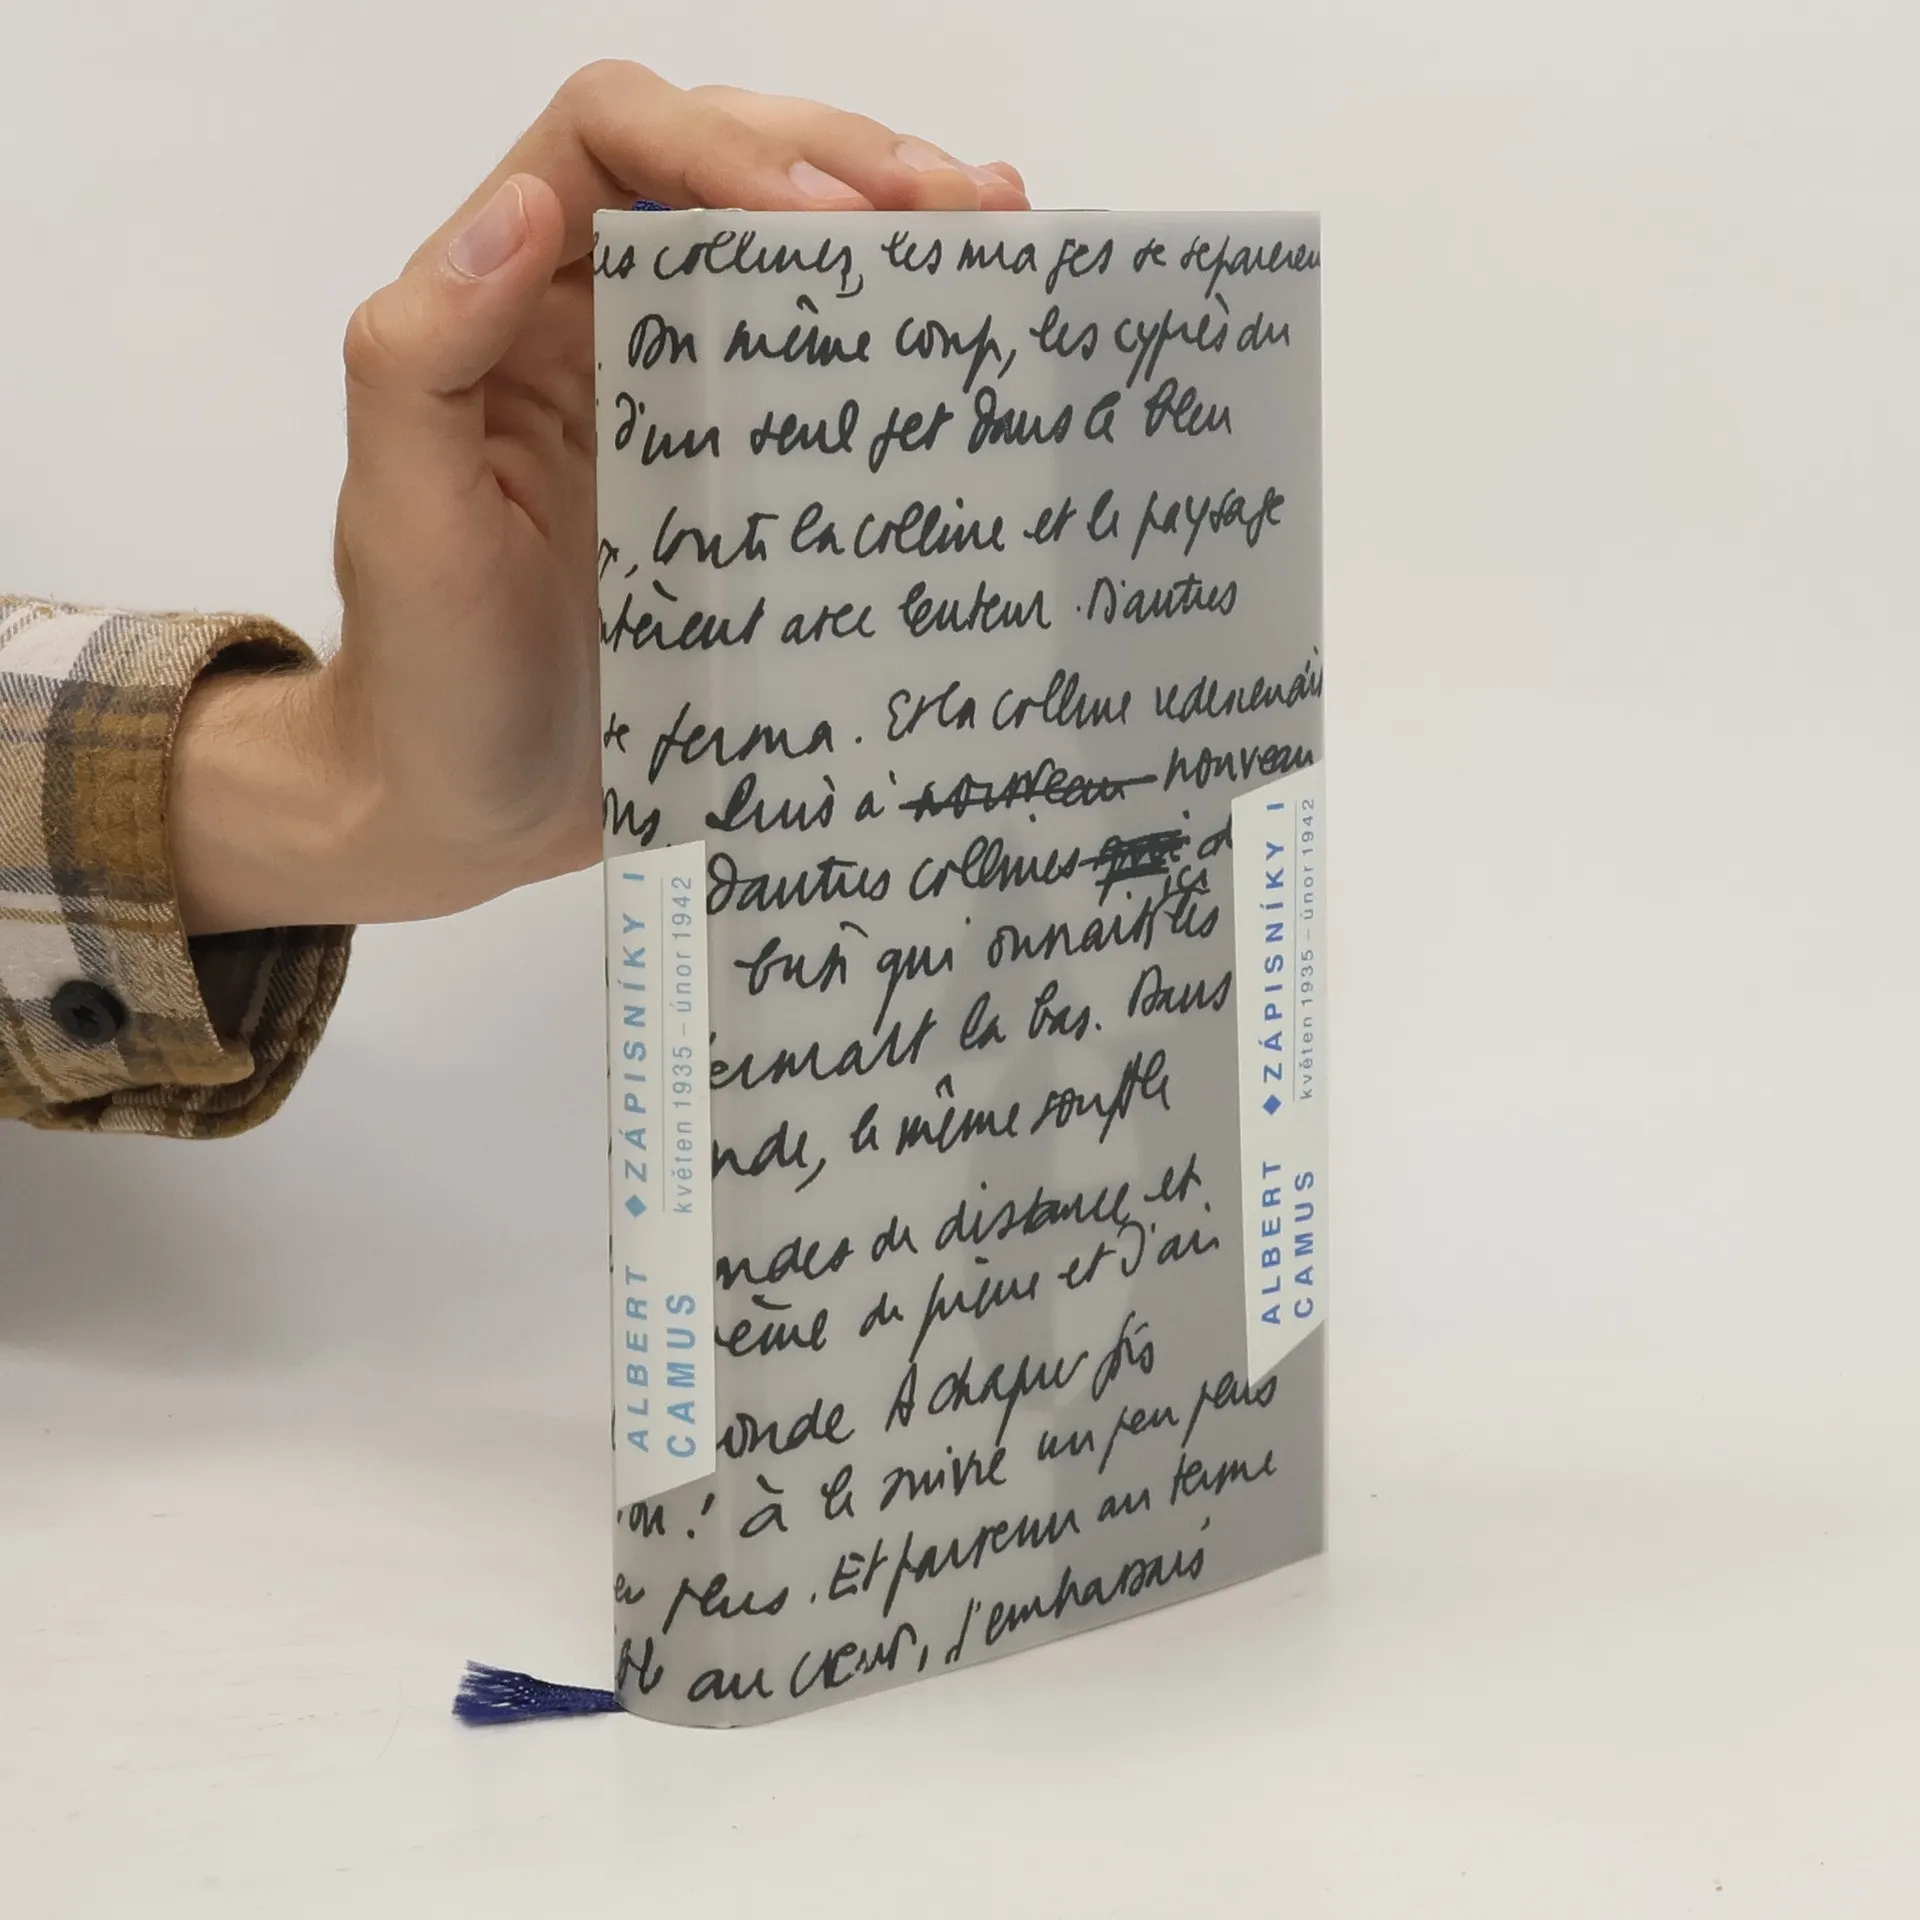 collines, les nuages se séparèren
. Du même coup, les cyprès du
d'un seul jet dans le bleu
, toute la colline et le paysage
ntèrent avec lenteur. D'autres
se ferma. Et la colline redescendait
ons. Puis à nouveau nouveau
D'autres collines
ici
qui ouvrait les
fermait là bas. Dans
nde, le même souffle
ndes de distance et
de pierre et d'air
onde A chaque fois
on : à le suivre un peu plus
eu plus. Et parvenu au terme
au cœur, j'embrassais
ALBERT CAMUS ◆ ZÁPISNÍKY I
květen 1935 – únor 1942
ALBERT CAMUS ◆ ZÁPISNÍKY I
květen 1935 – únor 1942